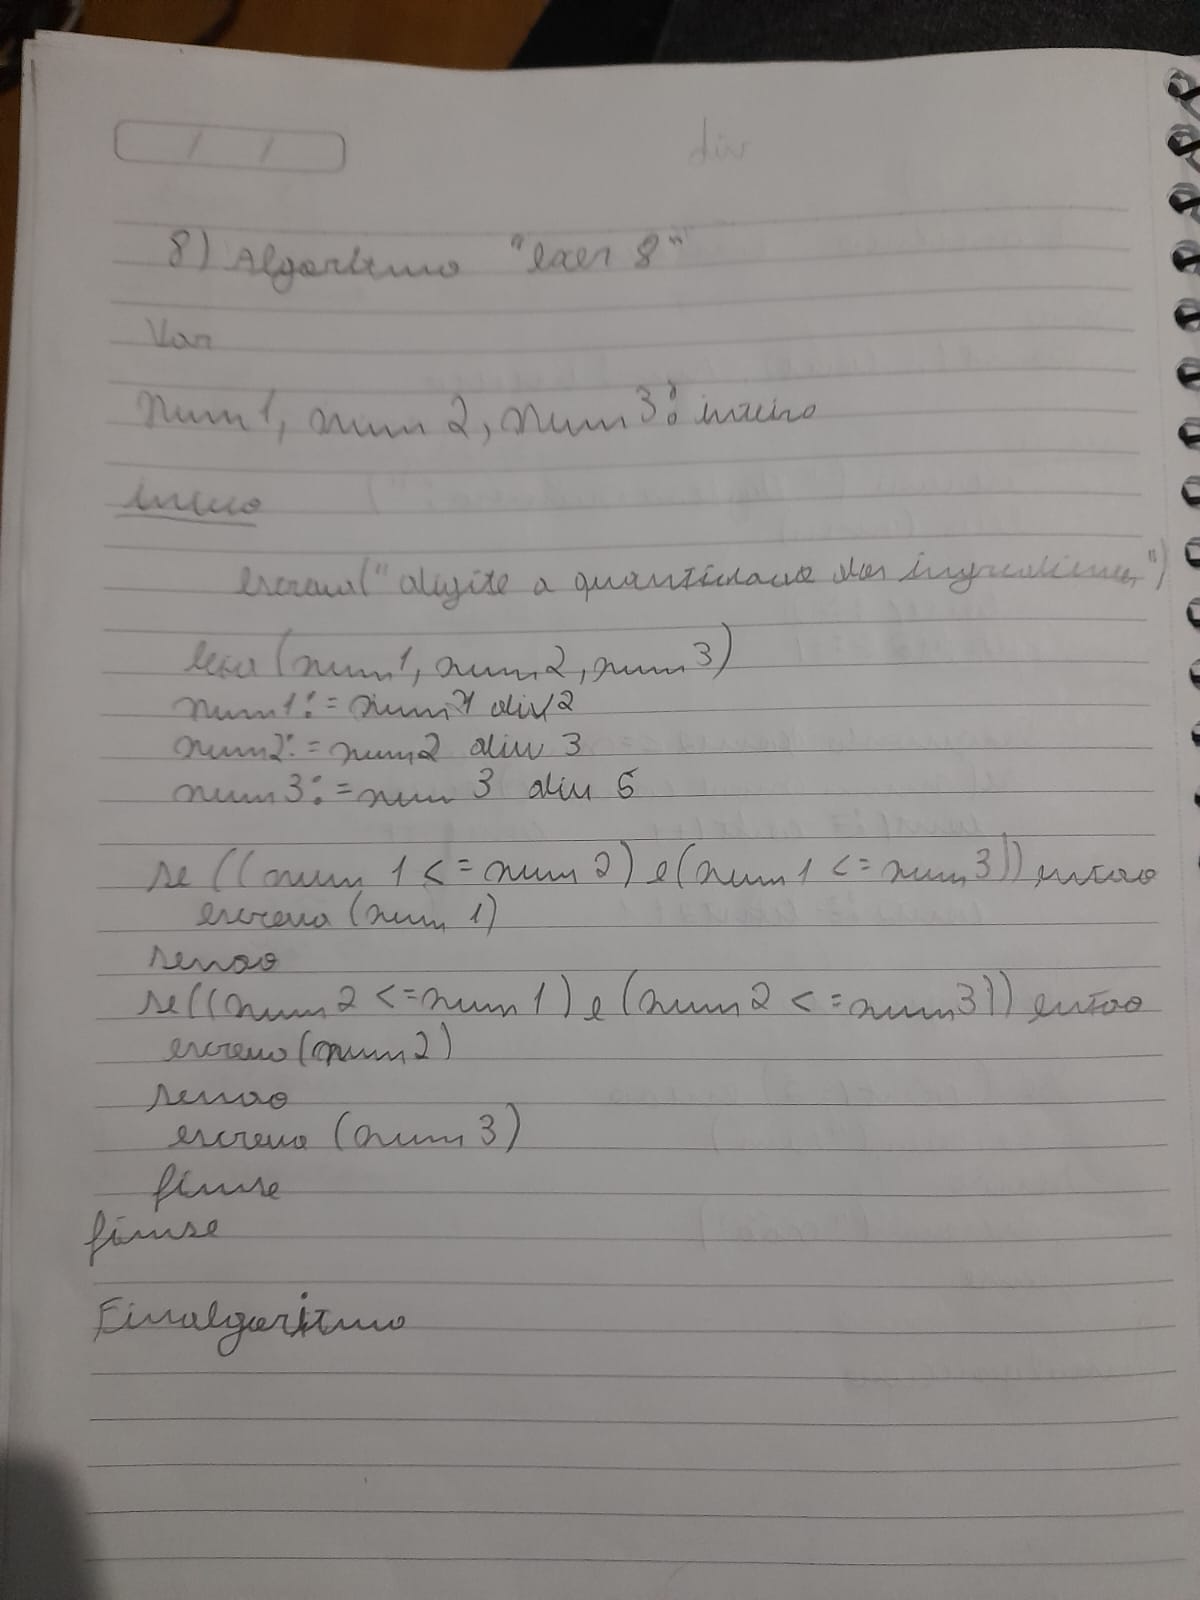 / /
div
8) Algoritmo "exer 8"
Var
num1, num2, num3: inteiro
inicio
escreva("digite a quantidade dos ingredientes")
leia (num1, num2, num3)
num1:= num1 div 2
num2:= num2 div 3
num3:= num 3 div 5
se ((num 1 <= num 2) e (num 1 <= num 3)) entao
escreva (num 1)
senao
se((num 2 <= num 1) e (num 2 <= num 3)) entao
escreva (num 2)
senao
escreva (num 3)
fimse
fimse
Fimalgoritmo